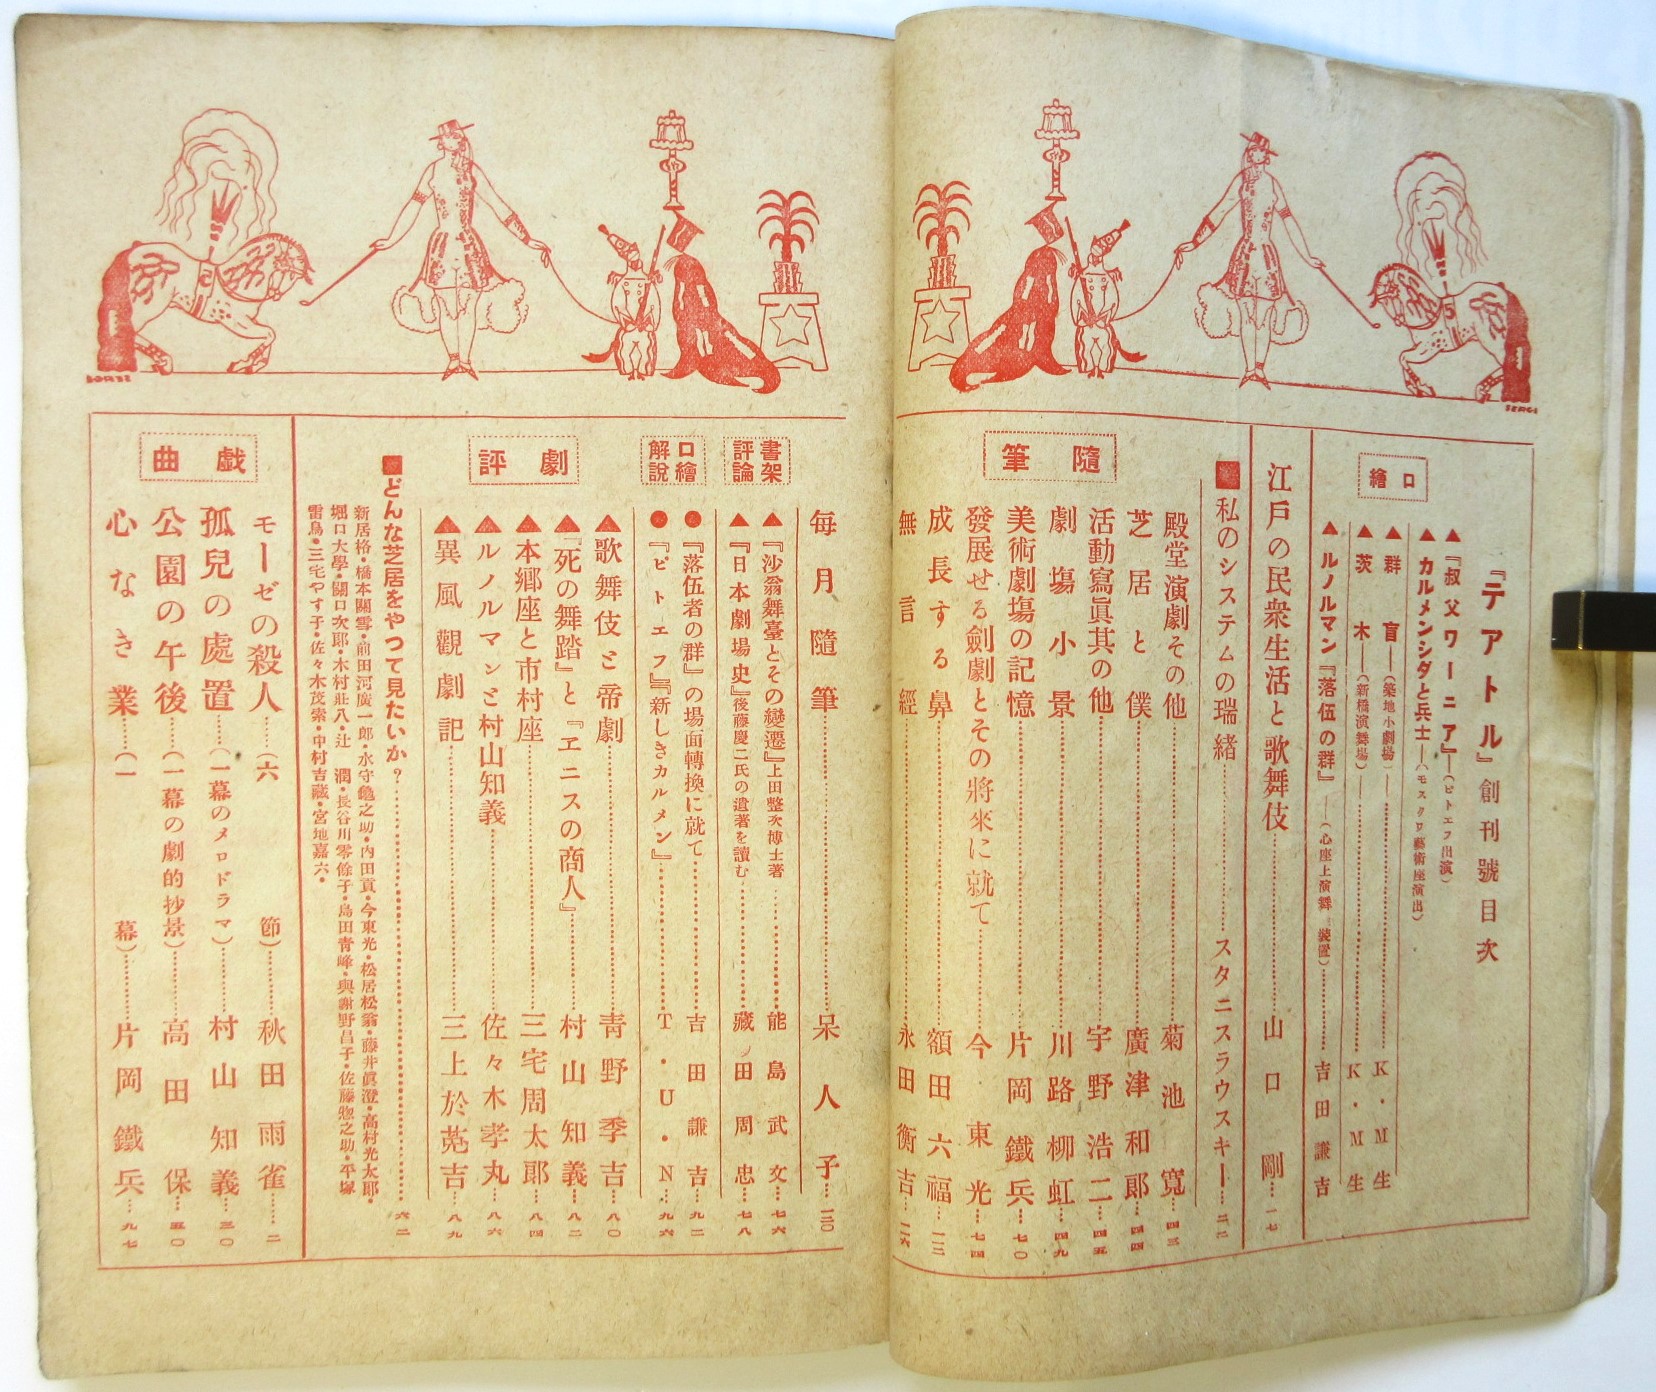 『テアトル』創刊號目次
口繪
▲『叔父ワーニア』―(ピトエフ出演)
▲カルメンシダと兵士―(モスクワ藝術座演出)
▲群盲―(築地小劇場)……K・M生
▲茨木―(新橋演舞場)……K・M生
▲ルノルマン『落伍の群』―(心座上演舞 裝置)……吉田謙吉
江戸の民衆生活と歌舞伎……山口剛…一七
■私のシステムの瑞緒……スタニスラウスキー…二二
隨筆
殿堂演劇その他……菊池寛…四三
芝居と僕……廣津和郎…四四
活動寫眞其の他……宇野浩二…四五
劇塲小景……川路柳虹…四九
美術劇塲の記憶……片岡鐵兵…七〇
發展せる劍劇とその將來に就て……今東光…七四
成長する鼻……額田六福…一一二
無言經……永田衡吉…一一六
毎月隨筆……呆人子…一二〇
書架評論
▲『沙翁舞臺とその變遷』上田整次博士著……能島武文…七六
▲『日本劇場史』後藤慶二氏の遺著を讀む……藏田周忠…七八
口繪解說
●『落伍者の群』の場面轉換に就て……吉田謙吉…九二
●『ピトエフ』『新しきカルメン』……T・U・N…九六
劇評
▲歌舞伎と帝劇……靑野季吉…八〇
▲『死の舞踏』と『ヱニスの商人』……村山知義…八二
▲本鄕座と市村座……三宅周太郎…八四
▲ルノルマンと村山知義……佐々木孝丸…八六
▲異風觀劇記……三上於菟吉…八九
■どんな芝居をやつて見たいか?……六二
新居格・橋本關雪・前田河廣一郎・水守龜之助・內田貢・今東光・松居松翁・藤井眞澄・高村光太郎・
堀口大學・關口次郎・木村莊八・辻潤・長谷川零餘子・島田青峰・與謝野晶子・佐藤惣之助・平塚
雷鳥・三宅やす子・佐々木茂索・中村吉藏・宮地嘉六・
戲曲
モーゼの殺人……(六節)……秋田雨雀……二
孤兒の處置……(一幕のメロドラマ)……村山知義…三〇
公園の午後……(一幕の劇的抄景)……高田保…五〇
心なき業……(一幕)……片岡鐵兵…九七